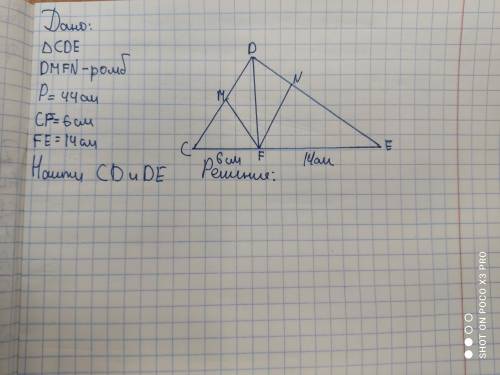 Дано:
△CDE
DMFN-ромб
P=44см
CF=6см
FE=14см
Найти CD и DE
D
N
M
C
F
E
6см
14см
Решение:
SHOT ON POCO X3 PRO